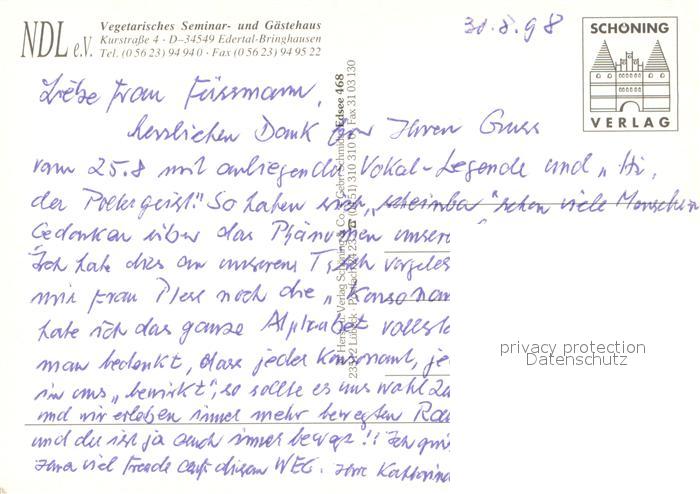 NDL e.V.
Vegetarisches Seminar- und Gästehaus
Kurstraße 4 · D-34549 Edertal-Bringhausen
Tel. (0 56 23) 94 94 0 · Fax (0 56 23) 94 95 22
30.8.98
SCHÖNING
VERLAG
Liebe Frau Füssmann,
herzlichen Dank für Ihren Gruss
vom 25.8 mit anliegender Vokal-Legende und „Hi,
der Poltergeist." So haben sich „scheinbar" schon viele Menschen
Gedanken über das Phänomen unsere
Ich habe dies an unserem Tisch vorgeles
mir Frau Plese noch die „Konsonan
habe ich das ganze Alphabet vollstä
man bedenkt, dass jeder Konsonant, je
in uns „bewirkt", so sollte es uns wohl zu
und wir erleben immer mehr bewegten Rau
und der ist ja auch immer bewegt!! Ich
viel Freude auf diesem WEG. Ihre Katharina
Edsee 468
privacy protection
Datenschutz